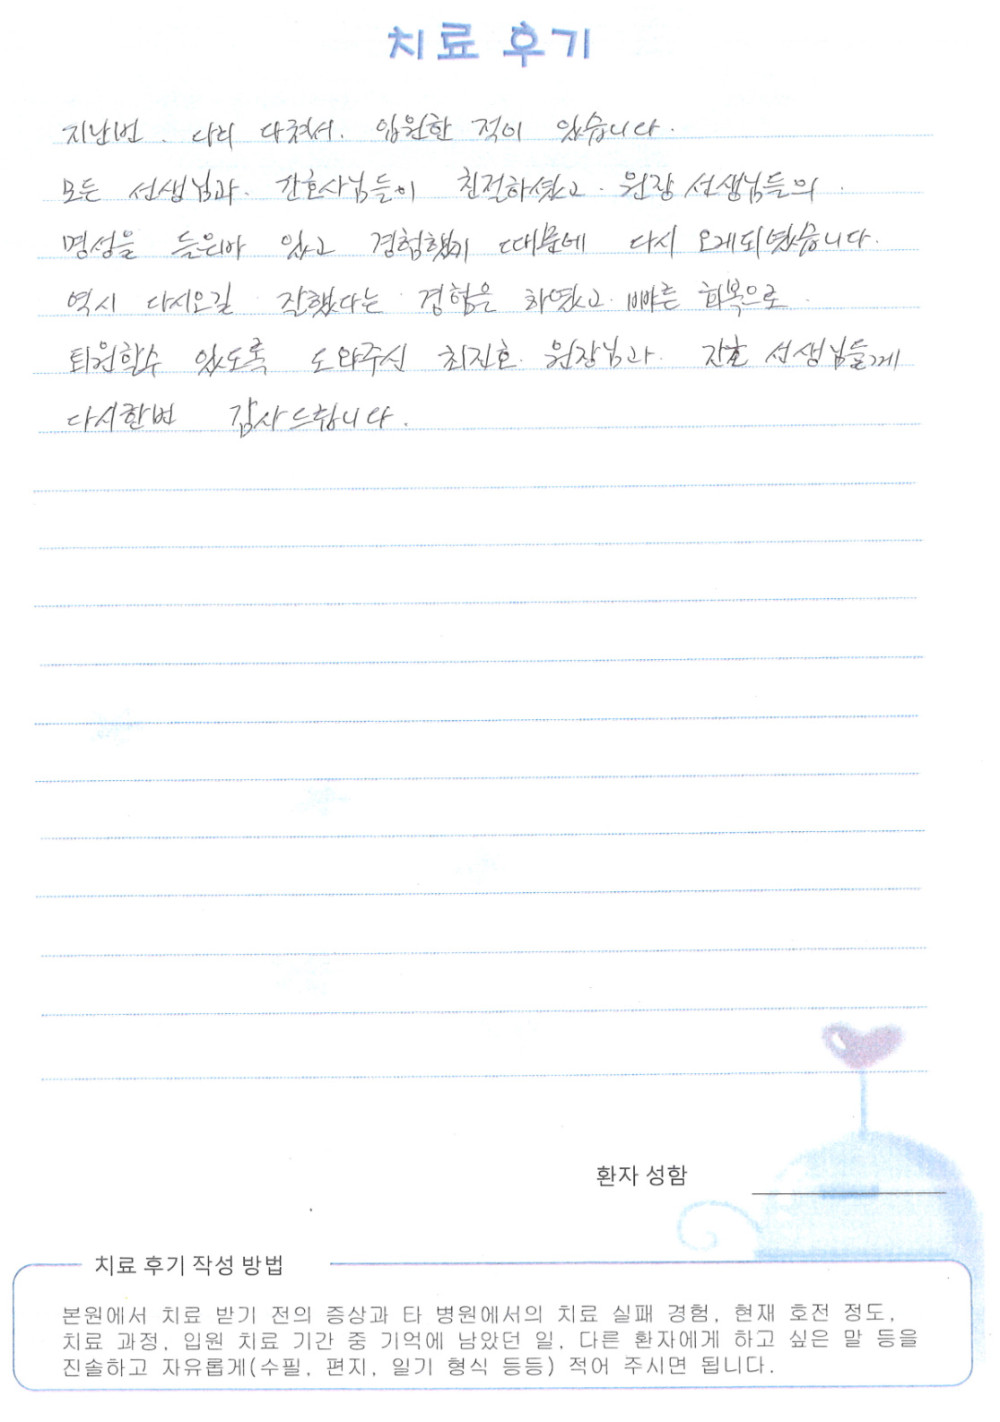 치료 후기
지난번. 다리 다쳐서. 입원한 적이 있습니다.
모든 선생님과. 간호사님들이 친절하셨고. 원장 선생님들의.
명성을 들은바 있고 경험했기 때문에 다시 오게되었습니다.
역시 다시오길 잘했다는 경험은 하였고. 빠른 회복으로.
퇴원할수 있도록 도와주신 최진호. 원장님과. 간호 선생님들께
다시한번 감사드립니다.
환자 성함
치료 후기 작성 방법
본원에서 치료 받기 전의 증상과 타 병원에서의 치료 실패 경험, 현재 호전 정도,
치료 과정, 입원 치료 기간 중 기억에 남았던 일, 다른 환자에게 하고 싶은 말 등을
진솔하고 자유롭게(수필, 편지, 일기 형식 등등) 적어 주시면 됩니다.